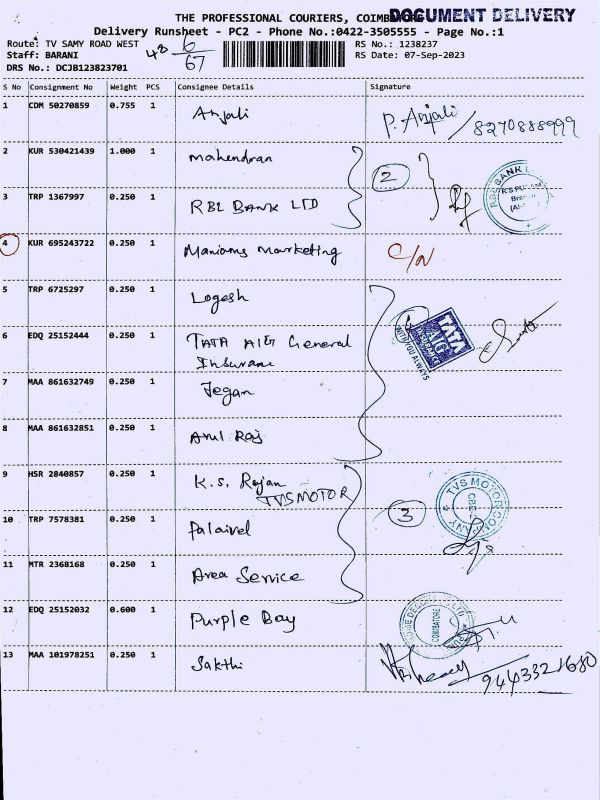 THE PROFESSIONAL COURIERS, COIMBATORE
DOCUMENT DELIVERY
Delivery Runsheet - PC2 - Phone No.:0422-3505555 - Page No.:1
Route: TV SAMY ROAD WEST
RS No.: 1238237
Staff: BARANI
RS Date: 07-Sep-2023
DRS No.: DCJB123823701
6
67
S No Consignment No Weight PCS Consignee Details Signature
1 CDM 50270859 0.755 1 Anjali P. Anjali / 8270888999
2 KUR 530421439 1.000 1 Mahendran 2
3 TRP 1367997 0.250 1 RBL BANK LTD
RBL BANK
4 KUR 695243722 0.250 1 Maniams Marketing C/N
5 TRP 6725297 0.250 1 Logesh
6 EDQ 25152444 0.250 1 TATA AIG General
Insurance
TATA
AIG
INSURANCE
WITH YOU ALWAYS
7 MAA 861632749 0.250 1 Jegan
8 MAA 861632851 0.250 1 Arul Raj
9 HSR 2840857 0.250 1 K.S. Rajan
TVS MOTOR
3
TVS MOTOR COMPANY
CBE-2
10 TRP 7578381 0.250 1 Palaivel
11 MTR 2368168 0.250 1 Area Service
12 EDQ 25152032 0.600 1 Purple Bay
COIMBATORE
13 MAA 101978251 0.250 1 Sakthi
9443321680